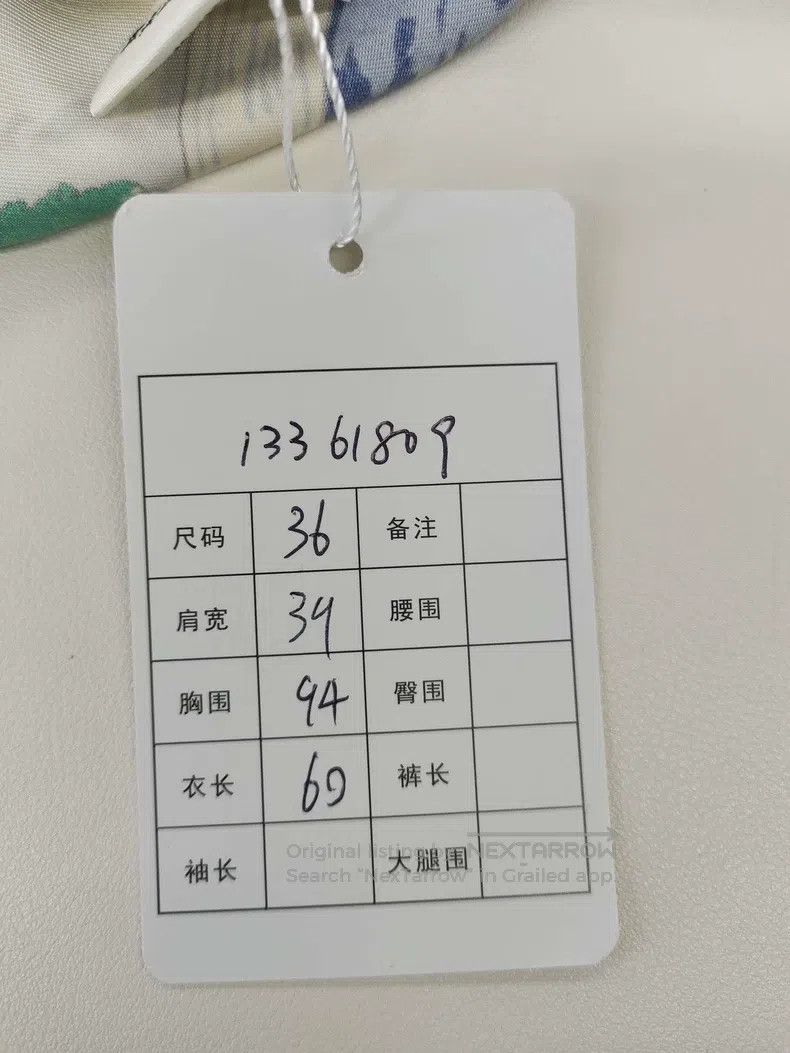 13361809
尺码 36 备注
肩宽 39 腰围
胸围 94 臀围
衣长 60 裤长
袖长 大腿围
Original listing by NEXTARROW
Search "NexTarrow" in Grailed app.